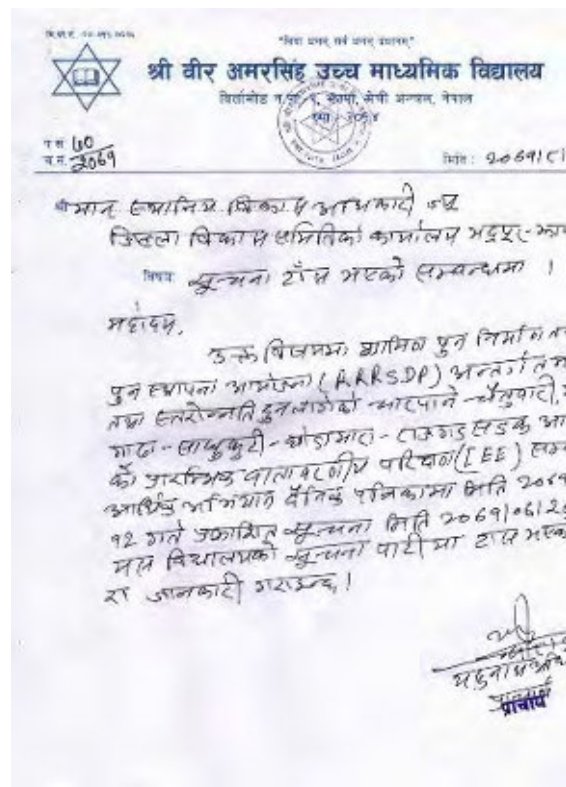 "विद्या धनम् सर्व धनम् प्रधानम्"
श्री वीर अमरसिंह उच्च माध्यमिक विद्यालय
विर्तामोड न.पा. झापा, मेची अञ्चल, नेपाल
प.सं. ६०
च.नं. २०६९
मिति: २०६९।८।
श्रीमान् स्थानिय विकास अधिकारी ज्यू
जिल्ला विकास समितिको कार्यालय भद्रपुर-झापा
विषय सूचना टाँस भएको सम्बन्धमा ।
महोदय,
उक्त विषयमा ग्रामिण पुन निर्माण
पुन स्थापना आयोजना (RRRSDP) अन्तर्गत
तथा स्तरोन्नति हुन लागेको चारपाने-चैतुबारी,
सडक
को प्रारम्भिक वातावरणीय परिक्षण (IEE)
आर्थिक अभियान दैनिक पत्रिकामा मिति २०६९
१२ गते प्रकाशित सूचना मिति २०६९।०६।२
यस विद्यालयको सूचना पाटीमा टाँस भएको
जानकारी गराउन्छ।
प्राचार्य